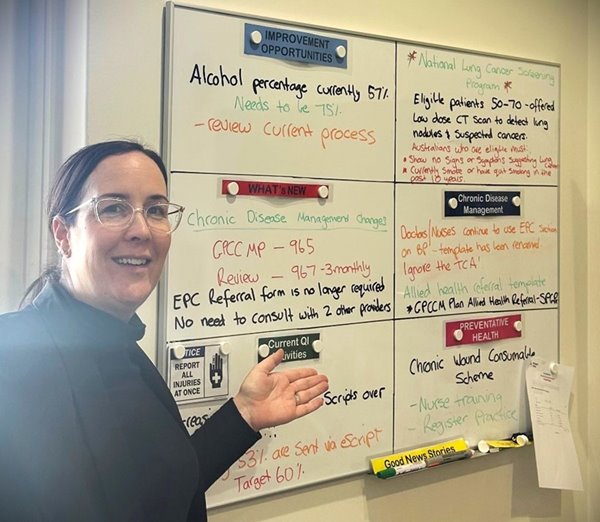 IMPROVEMENT
OPPORTUNITIES
Alcohol percentage currently 57%
Needs to be 75%
- review current process
National Lung Cancer Screening
Program
Eligible patients 50-70 - offered
Low dose CT Scan to detect lung
nodules & Suspected cancers.
Australians who are eligible must:
* Show no signs or Symptoms suggesting Lung Cancer
* Currently Smoke or have quit smoking in the
past 10 years
WHAT'S NEW
Chronic Disease Management Changes
GPCCMP - 965
Review - 967 - 3monthly
EPC Referral form is no longer required
No need to consult with 2 other providers
Chronic Disease
Management
Doctors/Nurses continue to use EPC Section
on BP - template has been renamed
Ignore the TCA!
Allied health referral template
* GPCCM Plan Allied Health Referral-SPCP
NOTICE
REPORT
ALL
INJURIES
AT ONCE
Current QI
Scripts over
53% are Sent via eScript
Target 60%
PREVENTATIVE
HEALTH
Chronic Wound Consumable
Scheme
- Nurse training
- Register Practice
Good News Stories